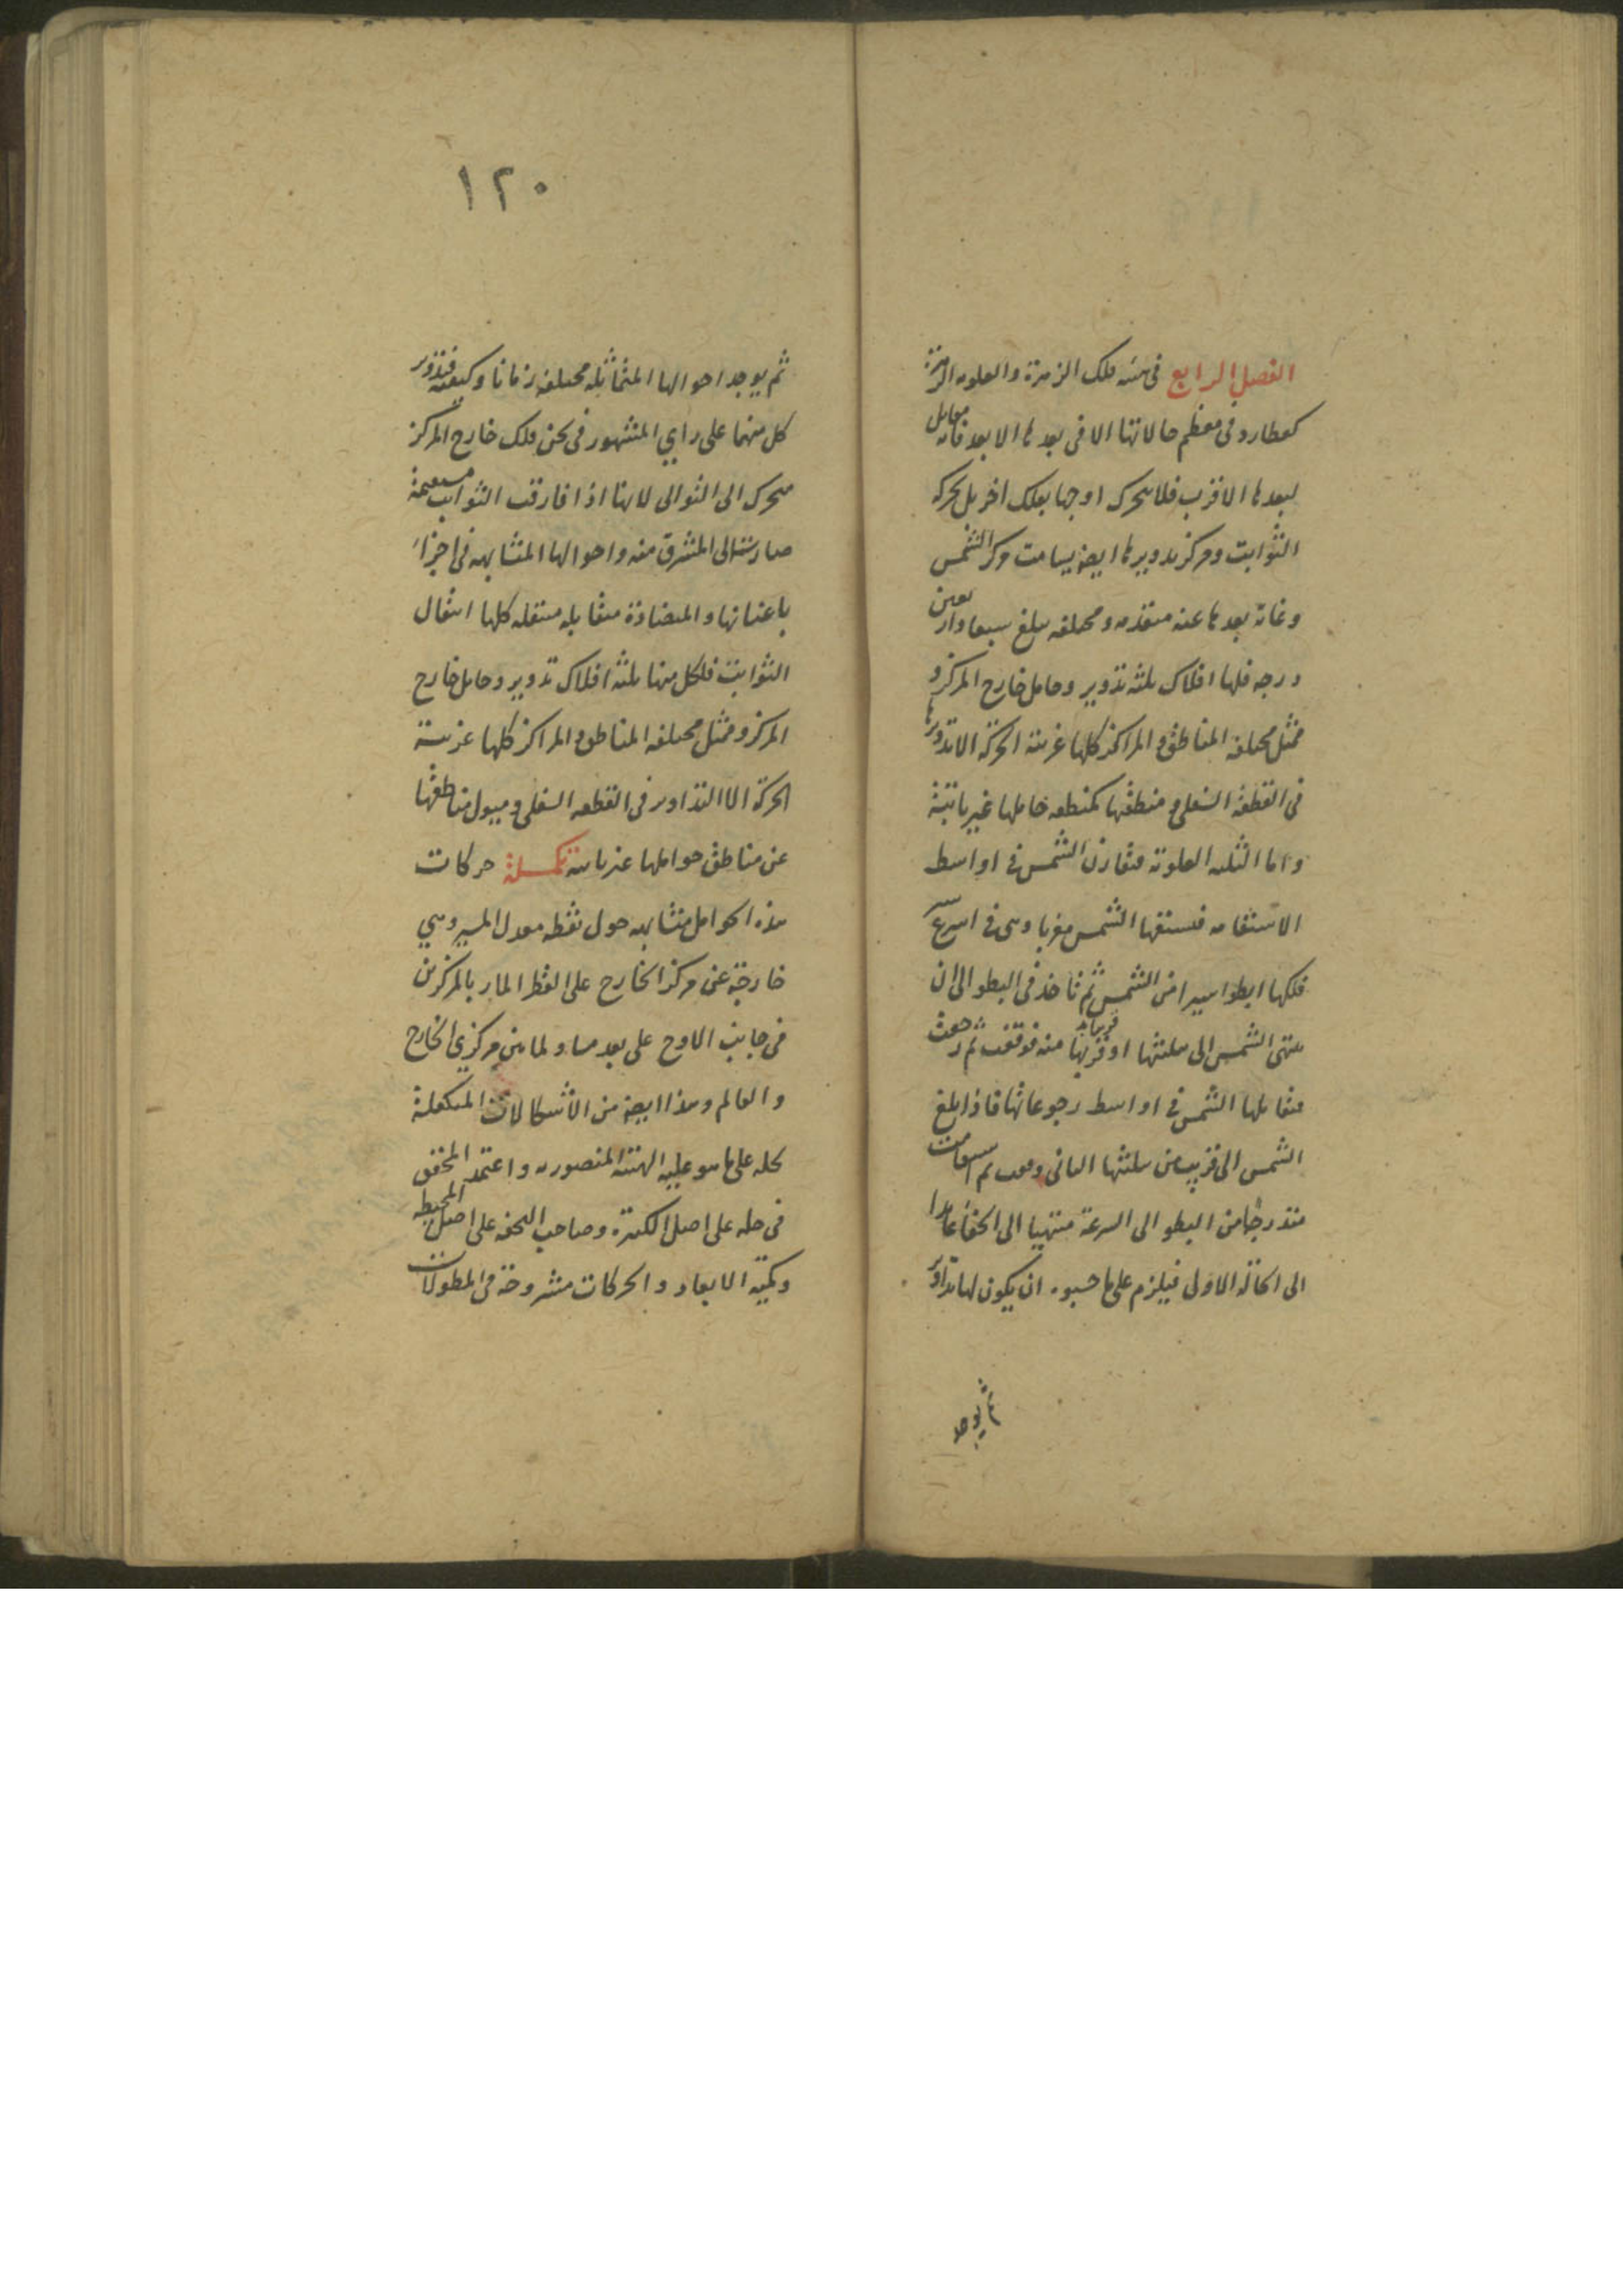 الفصل الرابع في هيئة فلك الزهرة والعلوية الزهرة
كعطارد في معظم حالاتها الا في بعدها الابعد فانه مقابل
لبعدها الاقرب فلا يتحرك اوجها بفلك اخر بل بحركة
الثوابت ومركز تدويرها ايضا يسامت مركز الشمس
وغاية بعدها عنه متقدمة ومختلفة يبلغ سبعا واربعين
درجة فلها افلاك ثلثة تدوير وحامل خارج المركز و
ممثل مختلفة المناطق والمراكز كلها غربية الحركة الا تدويرها
في القطعة السفلى و منطقتها كمنطقة حاملها غير ثابتة
واما الثلثة العلوية فتقارن الشمس في اواسط
الاستقامة فتسبقها الشمس مغربا وهي في اسرع سير
فلكها ابطؤ سيرا من الشمس ثم تاخذ في البطو الى ان
ينتهي الشمس الى تثليثها او قريبا منه فوقفت ثم رجعت
فتقابلها الشمس في اواسط رجوعاتها فاذا بلغ
الشمس الى قريب من تثليثها الثاني وقعت ثم استقامت
متدرجا من البطو الى السرعة منتهيا الى الخفا عائدا
الى الحالة الاولى فيلزم على ما حسبوه ان يكون لها تداوير
ثم يوجد
١٢٠
ثم يوجد احوالها المتماثلة مختلفة زمانا وكيفية فتدوير
كل منهما على راي المشهور في ثخن فلك خارج المركز
متحرك الى التوالي لانها اذا فارقت الثوابت مستقيمة
صارت الى المشرق منه واحوالها المتشابهة في اجزاء
باعيانها والمتضادة متقابلة منتقلة كلها انتقال
الثوابت فلكل منها ثلثة افلاك تدوير وحامل خارج
المركز وممثل مختلفة المناطق والمراكز كلها غربية
الحركة الا التداوير في القطعة السفلى وميول مناطقها
عن مناطق حواملها غير ثابتة تكملة حركات
هذه الحوامل متشابهة حول نقطة معدل المسير وهي
خارجة عن مركز الخارج على القطر المار بالمركزين
في جانب الاوج على بعد مساو لما بين مركزي الخارج
والعالم وهذا ايضا من الاشكالات المتكفلة
لحله على ما هو عليه الهيئة المنصورية واعتمد المحقق
في حله على اصل الكبيرة وصاحب التحفة على اصل المحيطة
وكمية الابعاد والحركات مشروحة في المطولات